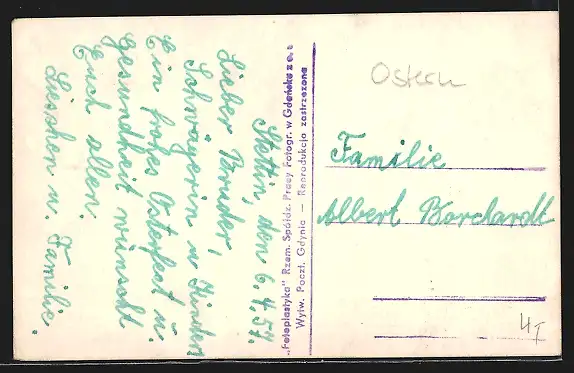 Stettin, den 6.4.57.
Lieber Bruder,
Schwägerin u Kinder
Ein frohes Osterfest u.
Gesundheit wünscht
Euch allen.
Lieschen u. Familie.
„Fotoplastyka" Rzem. Spółdz. Pracy Fotogr. w Gdańsku z o. u
Wytw. Poczt. Gdynia — Reprodukcja zastrzeżona
Ostern
Familie
Albert Borchardt